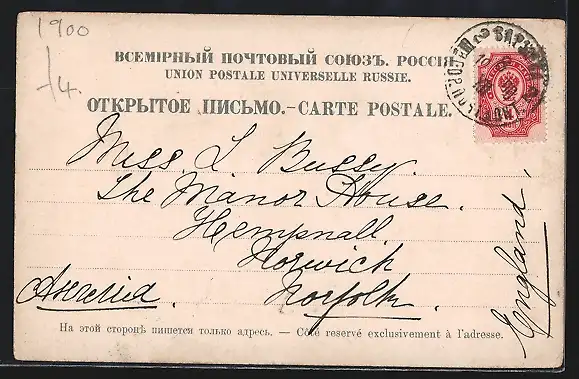 1900
-/4.
ВСЕМІРНЫЙ ПОЧТОВЫЙ СОЮЗЪ. РОССІЯ.
UNION POSTALE UNIVERSELLE RUSSIE.
ОТКРЫТОЕ ПИСЬМО.-CARTE POSTALE.
Miss. L Bussy.
The Manor House.
Hempnall
Norwich
Norfolk.
Англия.
England.
На этой сторонѣ пишется только адресъ. — Côté réservé exclusivement à l'adresse.